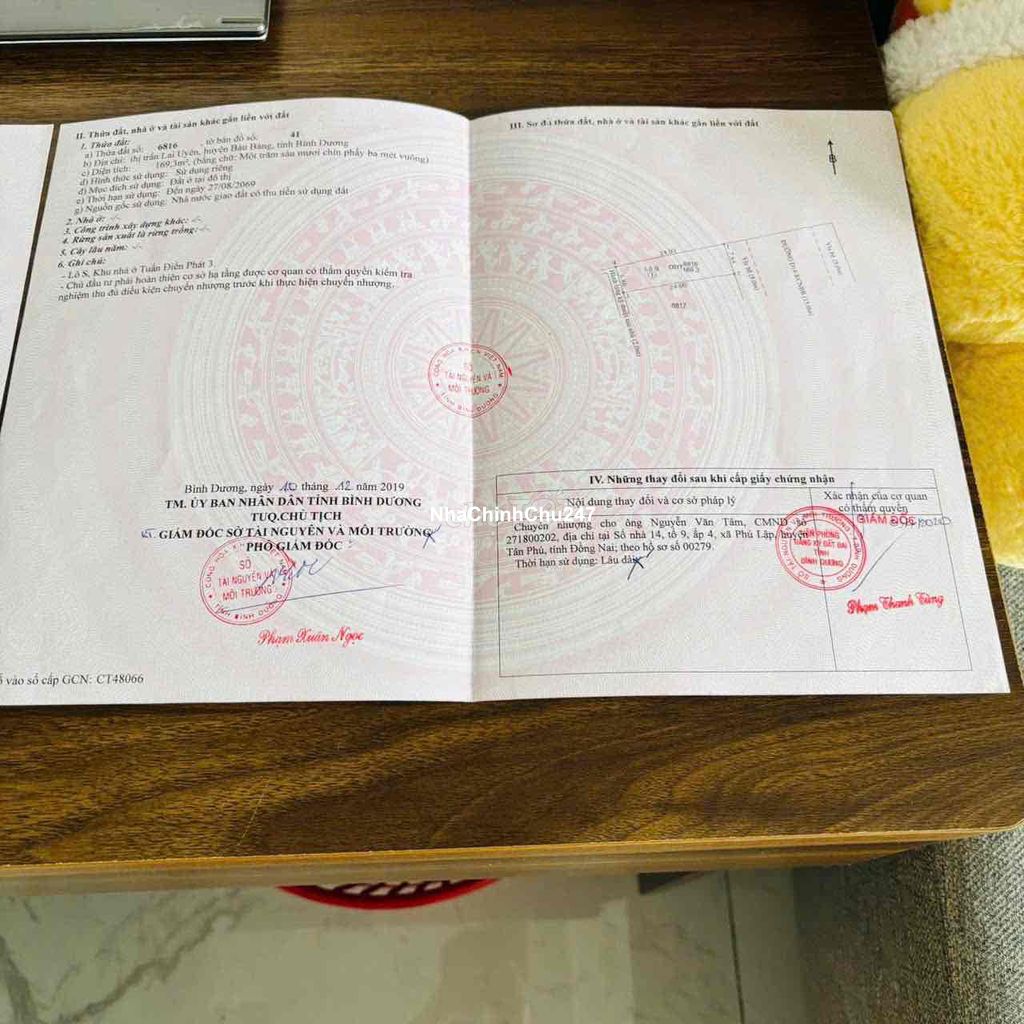 II. Thửa đất, nhà ở và tài sản khác gắn liền với đất
1. Thửa đất:
a) Thửa đất số: 6816 , tờ bản đồ số: 41
b) Địa chỉ: thị trấn Lai Uyên, huyện Bàu Bàng, tỉnh Bình Dương
c) Diện tích: 169,3m², (bằng chữ: Một trăm sáu mươi chín phẩy ba mét vuông)
d) Hình thức sử dụng: Sử dụng riêng
đ) Mục đích sử dụng: Đất ở tại đô thị
e) Thời hạn sử dụng: Đến ngày 27/08/2069
g) Nguồn gốc sử dụng: Nhà nước giao đất có thu tiền sử dụng đất
2. Nhà ở: -/-
3. Công trình xây dựng khác: -/-
4. Rừng sản xuất là rừng trồng: -/-
5. Cây lâu năm: -/-
6. Ghi chú:
- Lô S, Khu nhà ở Tuấn Điền Phát 3.
- Chủ đầu tư phải hoàn thiện cơ sở hạ tầng được cơ quan có thẩm quyền kiểm tra
nghiệm thu đủ điều kiện chuyển nhượng trước khi thực hiện chuyển nhượng.
CỘNG HÒA X.H.C.N VIỆT NAM
SỞ
TÀI NGUYÊN VÀ
MÔI TRƯỜNG
TỈNH BÌNH DƯƠNG
Bình Dương, ngày 10 tháng 12 năm 2019
TM. ỦY BAN NHÂN DÂN TỈNH BÌNH DƯƠNG
TUQ.CHỦ TỊCH
KT. GIÁM ĐỐC SỞ TÀI NGUYÊN VÀ MÔI TRƯỜNG
PHÓ GIÁM ĐỐC
SỞ
TÀI NGUYÊN VÀ
MÔI TRƯỜNG
TỈNH BÌNH DƯƠNG
Phạm Xuân Ngọc
vào sổ cấp GCN: CT48066
III. Sơ đồ thửa đất, nhà ở và tài sản khác gắn liền với đất
B
6816
24.00
6817
IV. Những thay đổi sau khi cấp giấy chứng nhận
Nội dung thay đổi và cơ sở pháp lý
Xác nhận của cơ quan
có thẩm quyền
Chuyển nhượng cho ông Nguyễn Văn Tâm, CMND số
271800202, địa chỉ tại Số nhà 14, tổ 9, ấp 4, xã Phú Lập, huyện
Tân Phú, tỉnh Đồng Nai; theo hồ sơ số 00279.
Thời hạn sử dụng: Lâu dài
GIÁM ĐỐC
VĂN PHÒNG
ĐĂNG KÝ ĐẤT ĐAI
TỈNH
BÌNH DƯƠNG
Phạm Thanh Tùng
NhaChinhChu247